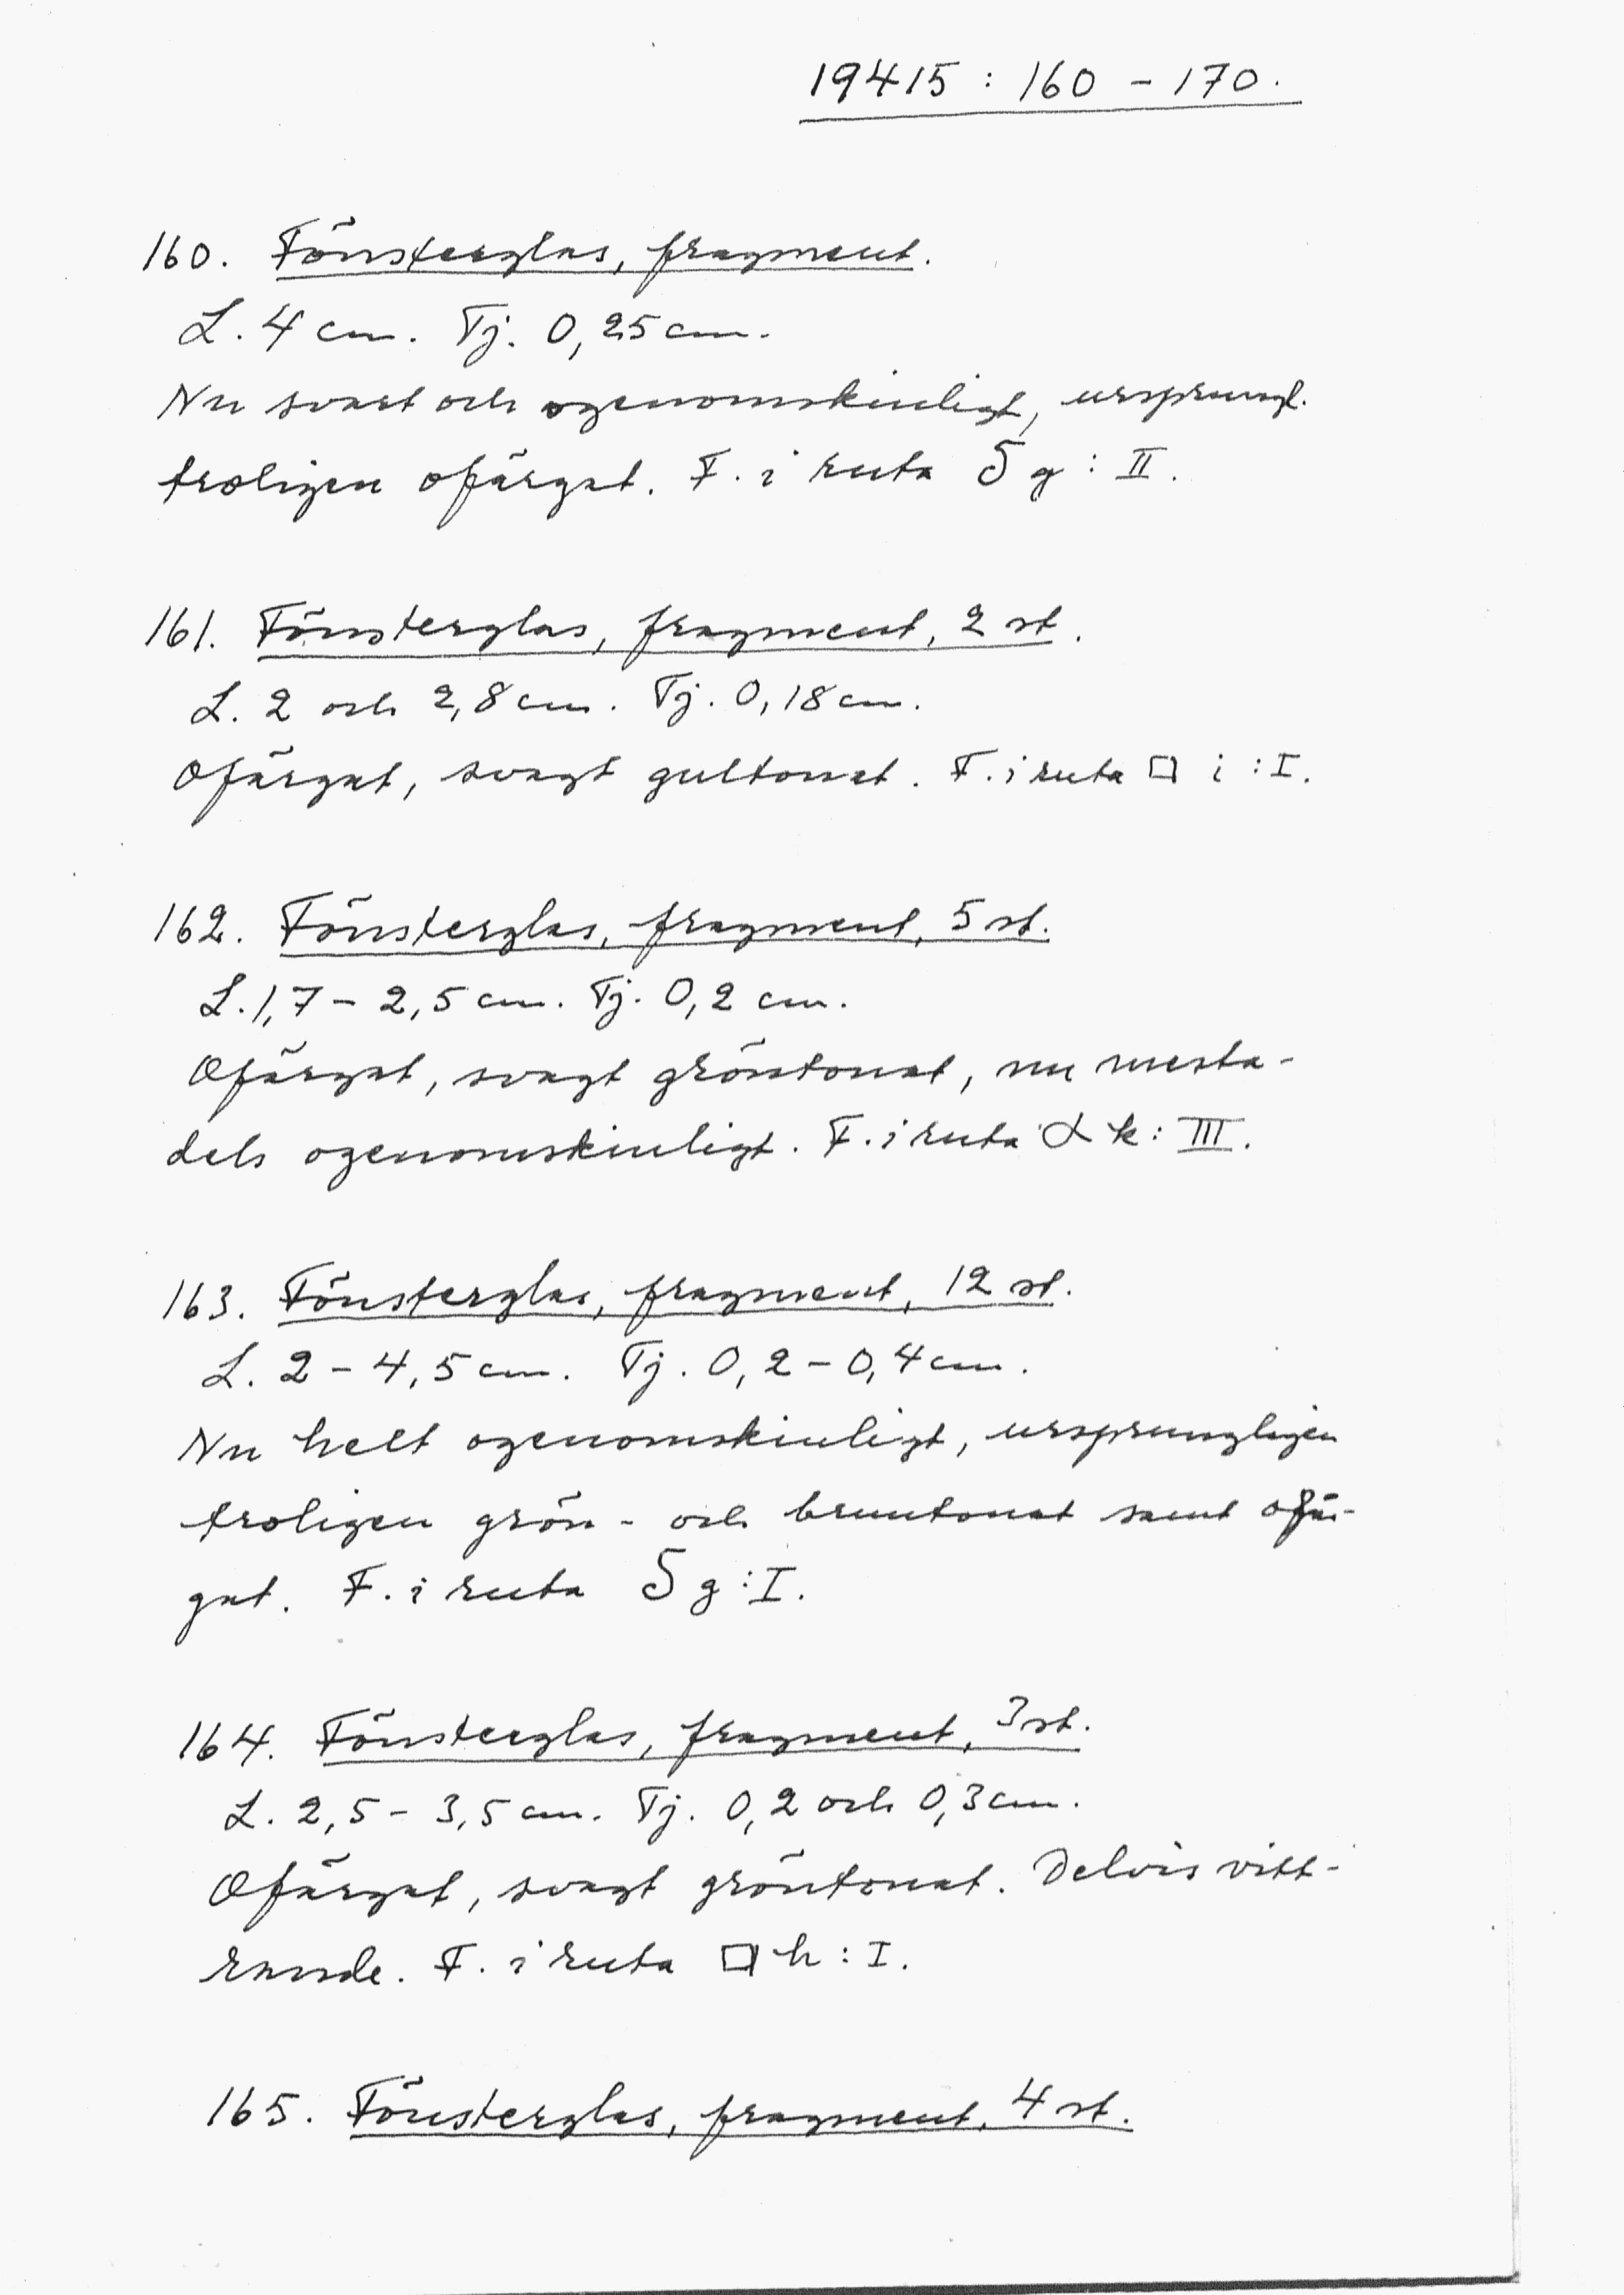 19415 : 160 - 170.
160. Fönsterglas, fragment.
L. 4 cm. Tj. 0,25 cm.
Nu svart och ogenomskinligt, ursprungl.
troligen ofärgat. F. i ruta δ g : II.
161. Fönsterglas, fragment, 2 st.
L. 2 och 2,8 cm. Tj. 0,18 cm.
Ofärgat, svagt gultonat. F. i ruta □ i : I.
162. Fönsterglas, fragment, 5 st.
L. 1,7 - 2,5 cm. Tj. 0,2 cm.
Ofärgat, svagt gröntonat, nu mesta-
dels ogenomskinligt. F. i ruta α k : III.
163. Fönsterglas, fragment, 12 st.
L. 2 - 4,5 cm. Tj. 0,2 - 0,4 cm.
Nu helt ogenomskinligt, ursprungligen
troligen grön- och bruntonat samt ofär-
gat. F. i ruta δ g : I.
164. Fönsterglas, fragment, 3 st.
L. 2,5 - 3,5 cm. Tj. 0,2 och 0,3 cm.
Ofärgat, svagt gröntonat. Delvis vitt-
rande. F. i ruta □ h : I.
165. Fönsterglas, fragment, 4 st.